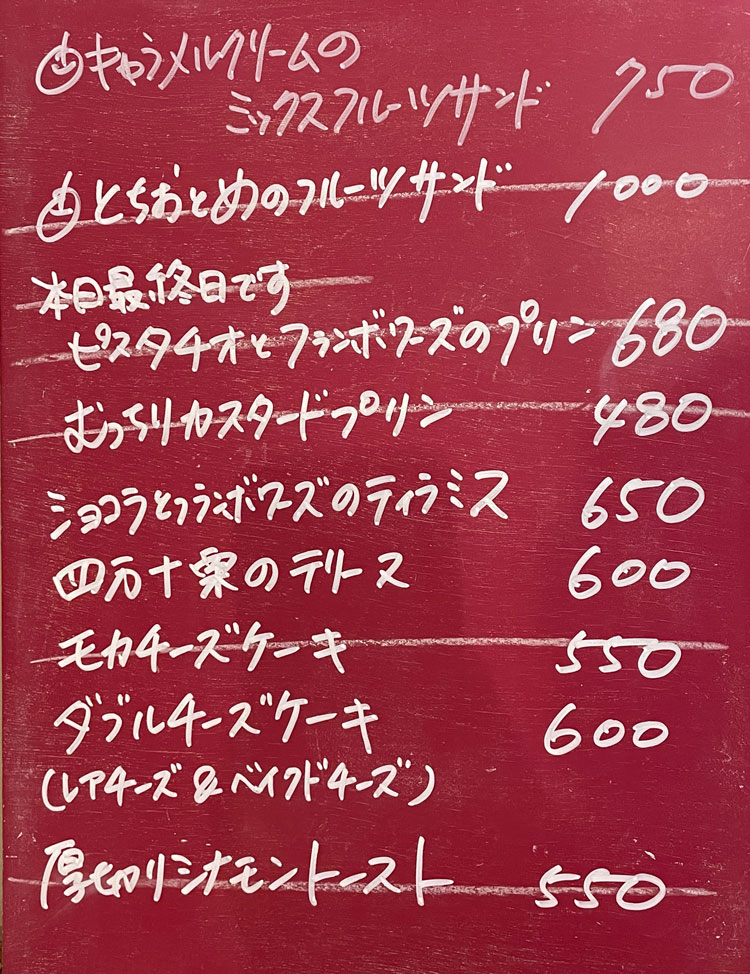 キャラメルクリームの
ミックスフルーツサンド 750
とちおとめのフルーツサンド 1000
本日最終日です
ピスタチオとフランボワーズのプリン 680
むっちりカスタードプリン 480
ショコラとフランボワーズのティラミス 650
四万十栗のテリーヌ 600
モカチーズケーキ 550
ダブルチーズケーキ 600
(レアチーズ&ベイクドチーズ)
厚切りシナモントースト 550